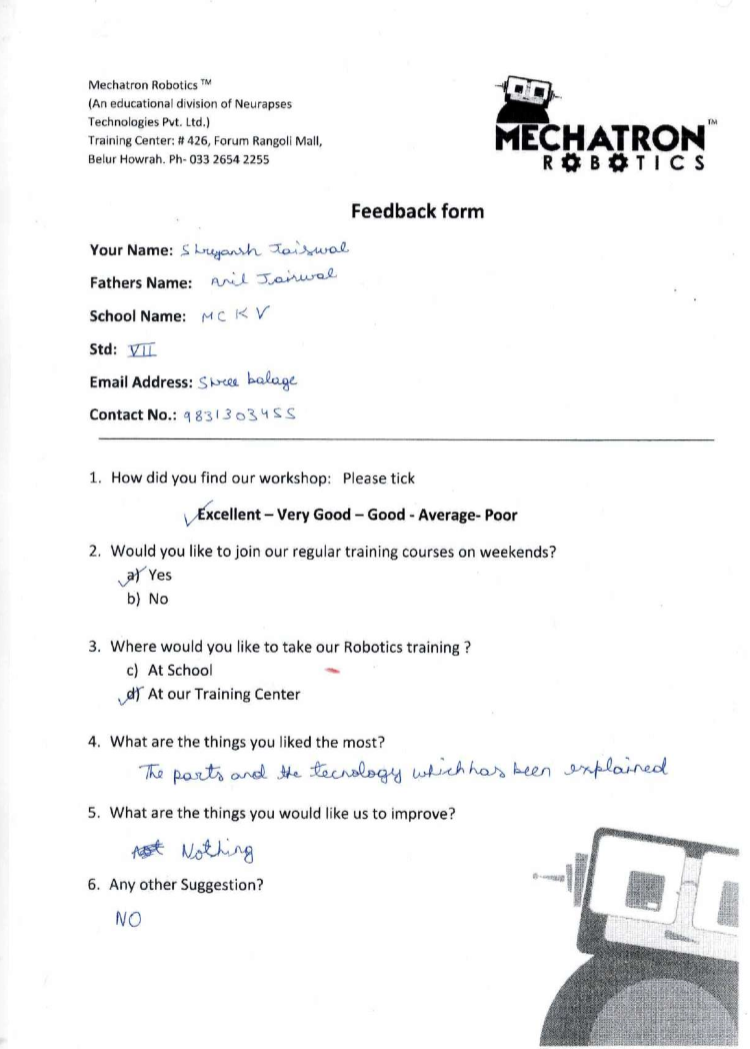 Mechatron Robotics ™
(An educational division of Neurapses
Technologies Pvt. Ltd.)
Training Center: # 426, Forum Rangoli Mall,
Belur Howrah. Ph- 033 2654 2255
MECHATRON™
ROBOTICS
Feedback form
Your Name: Shreyansh Jaiswal
Fathers Name: Anil Jaiswal
School Name: MCKV
Std: VII
Email Address: Shree balage
Contact No.: 9831303455
1. How did you find our workshop: Please tick
Excellent – Very Good – Good - Average- Poor
2. Would you like to join our regular training courses on weekends?
a) Yes
b) No
3. Where would you like to take our Robotics training ?
c) At School
d) At our Training Center
4. What are the things you liked the most?
The parts and the tecnology which has been explained
5. What are the things you would like us to improve?
Nothing
6. Any other Suggestion?
NO